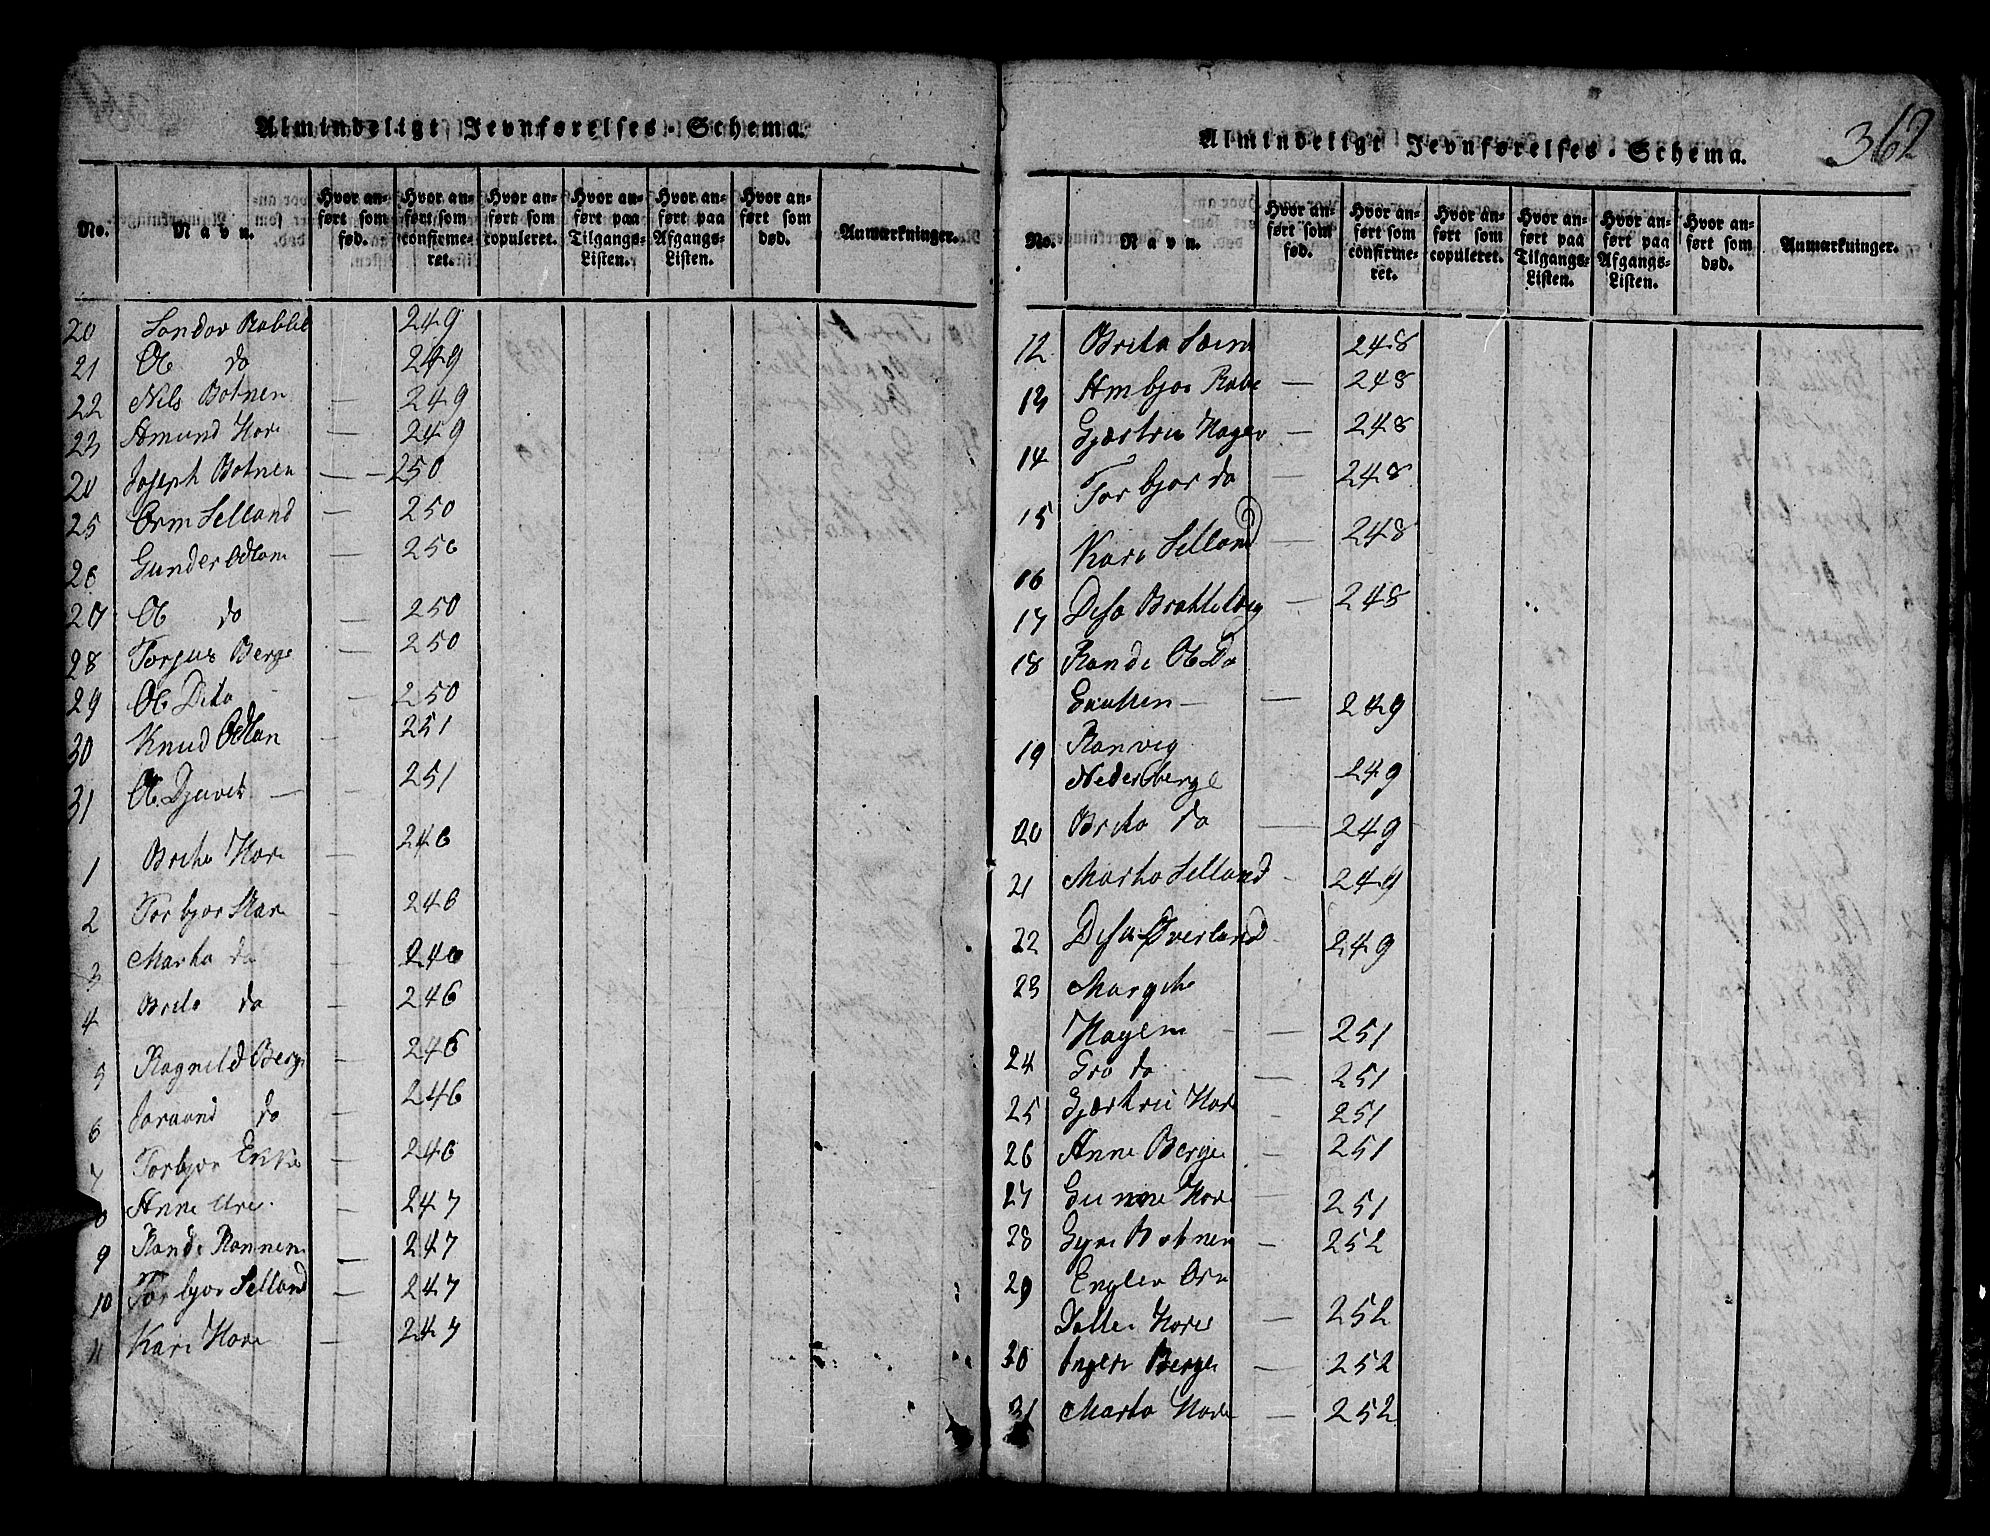 Almindeligt Jevnførelses-Schema.
No. Navn. Hvor anført som fød. Hvor anført som confirmeret. Hvor anført som copuleret. Hvor anført paa Tilgangs-Listen. Hvor anført paa Afgangs-Listen. Hvor anført som død. Anmærkninger.
20 Sondov 249
21 Ob do 249
22 Nils Botnen 249
23 Amund Hore — 249
20 Joseph Botnen — 250
25 Orm Selland — 250
26 Gunder Odlam — 250
27 Ob do — 250
28 Torjus Berge — 250
29 Ob Dito — 250
30 Knud Odlan — 251
31 Ob. Djuvet — 251
1 Brita Hore — 246
2 Torbjor — 246
3 Marta do — 246
4 Brita do — 246
5 Ragnild Berg — 246
6 do — 246
7 Torbjor — 246
8 Anne Ure — 247
9 Rande Rannen — 247
10 Torbjor Selland — 247
11 Kari Hore — 247
Almindeligt Jevnførelses-Schema.
362
No. Navn. Hvor anført som fød. Hvor anført som confirmeret. Hvor anført som copuleret. Hvor anført paa Tilgangs-Listen. Hvor anført paa Afgangs-Listen. Hvor anført som død. Anmærkninger.
12 Brita 248
13 Ambjor — 248
14 Gjærtru Hagen — 248
15 Torbjor do — 248
16 Kari Selland — 248
17 Desa — 248
18 Rande Ob Do
— 249
19 Ranvig
Nedersberge 249
20 Brita do — 249
21 Marta Selland — 249
22 Desa Øverland 249
23 Margita
Hagen — 251
24 Gro do — 251
25 Gjærtru Hore 251
26 Anne Berge — 251
27 Gunne Hore — 251
28 Gyri Botnen — 252
29
Hore — 252
30 Inger Berge — 252
31 Marta Hore — 252